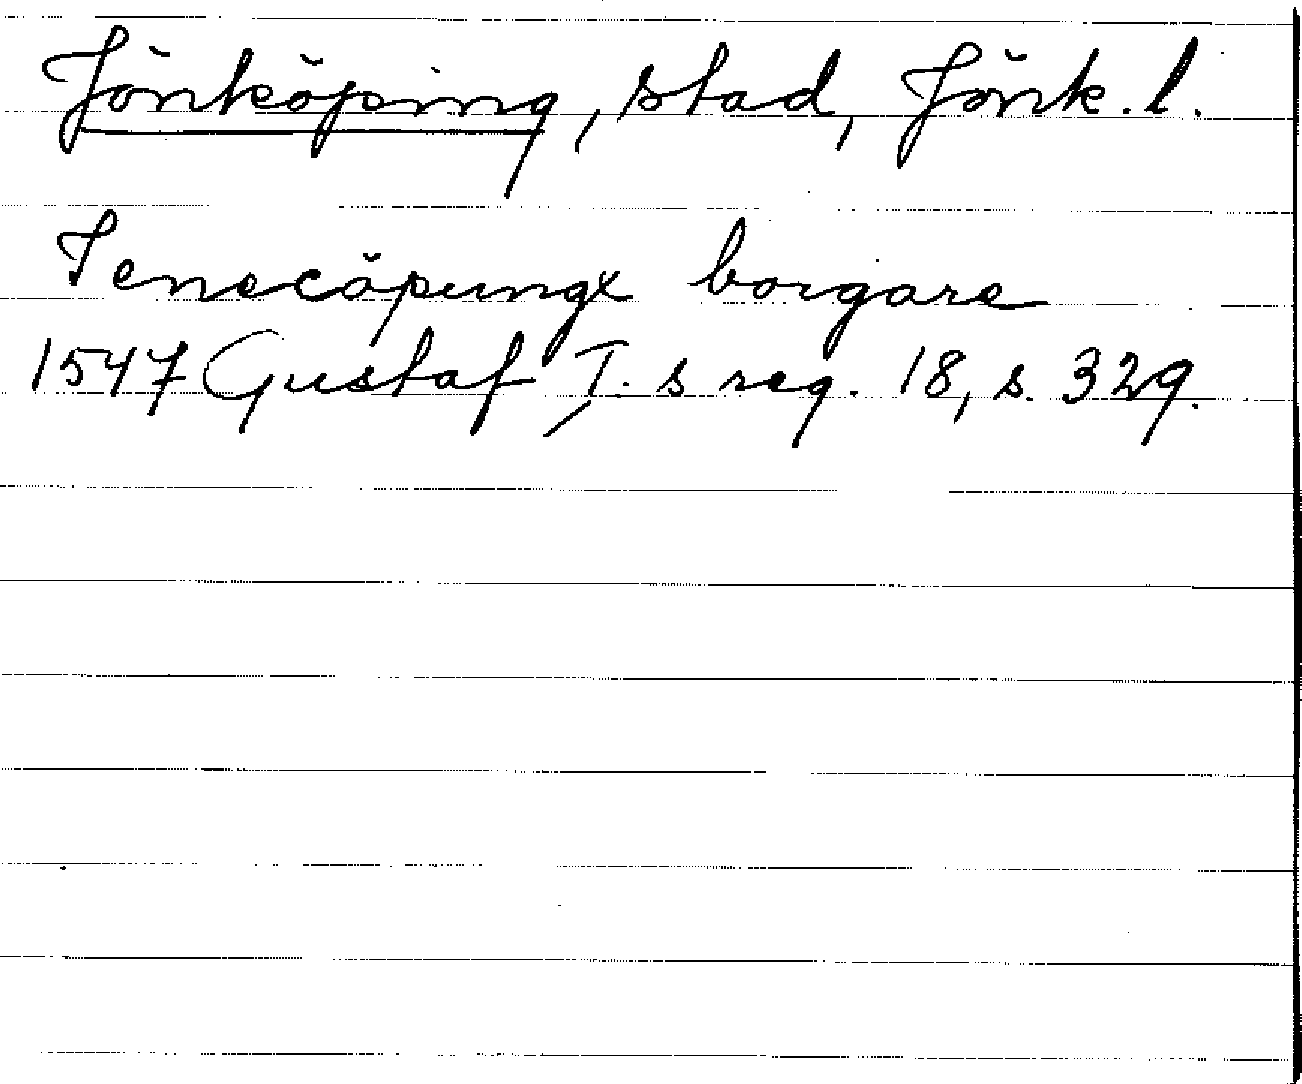 Jönköping, stad, Jönk. l.
Ienecöpungx borgare
1547 Gustaf I.s reg. 18, s. 329.